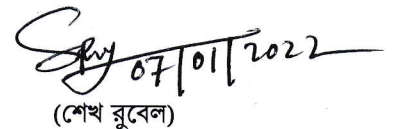 07/01/2022
(শেখ রুবেল)